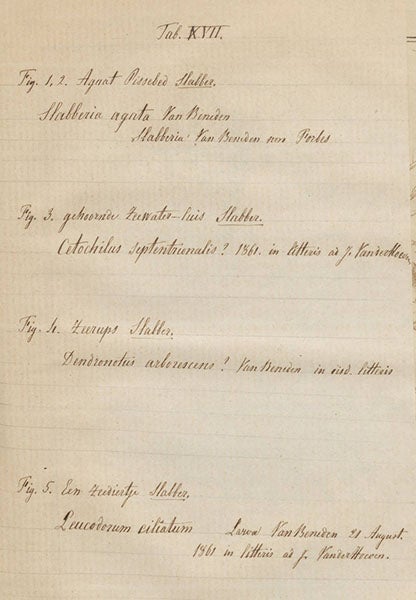 Tab. XVII.
Fig. 1, 2. Agaat Pissebed Slabber.
Slabberia agata Van Beneden
Slabberia Van Beneden non Forbes
Fig. 3. gehoornde Zeewater-luis Slabber.
Cetochilus septentrionalis? 1861. in litteris ad J. VanderHoeven
Fig. 4. Zeerups Slabber.
Dendronotus arborescens? Van Beneden in eisd. litteris
Fig. 5. Een Zeediertje Slabber.
Leucodorum ciliatum Larva Van Beneden 21 August.
1861 in litteris ad J. VanderHoeven.